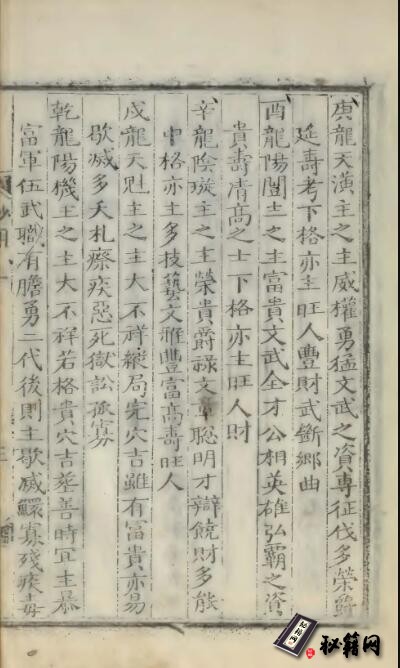 庚龍天潢主之主威權勇猛文武之資專征伐多榮爵
延壽考下格亦主旺人豐財武斷鄉曲
酉龍陽闓主之主富貴文武全才公相英雄弘霸之資
貴壽清高之士下格亦主旺人財
辛龍陰璇主之主榮貴爵祿文章聰明才辯饒財多能
中格亦主多技藝文雅豐富高壽旺人
戌龍天魁主之主大不祥縱局完穴吉雖有富貴亦易
歇滅多夭札瘵疾惡死獄訟孤寡
乾龍陽機主之主大不祥若格貴穴吉乘善時冝主暴
富軍伍武職有膽勇二代後則主歇滅鰥寡殘疾毒
秘籍网